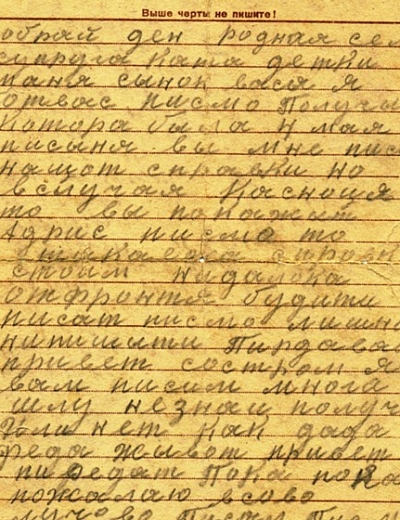 Выше черты не пишите!
обрай ден родная сем
супруга Ката детки
маня сынок вася я
отвас писмо получи
Котора была н мая
писыня вы мне пис
нащот справки но
вслучая Касноця
то вы покажит
Адрис писмо то
стоим нидалока
отфронтя будити
писат писмо лишно
нипишити Пирдавай
привет состром я
вам писим многа
шлу незнаи получ
или нет как дада
реда живот привет
пиредат пока пока
пожалаю всово